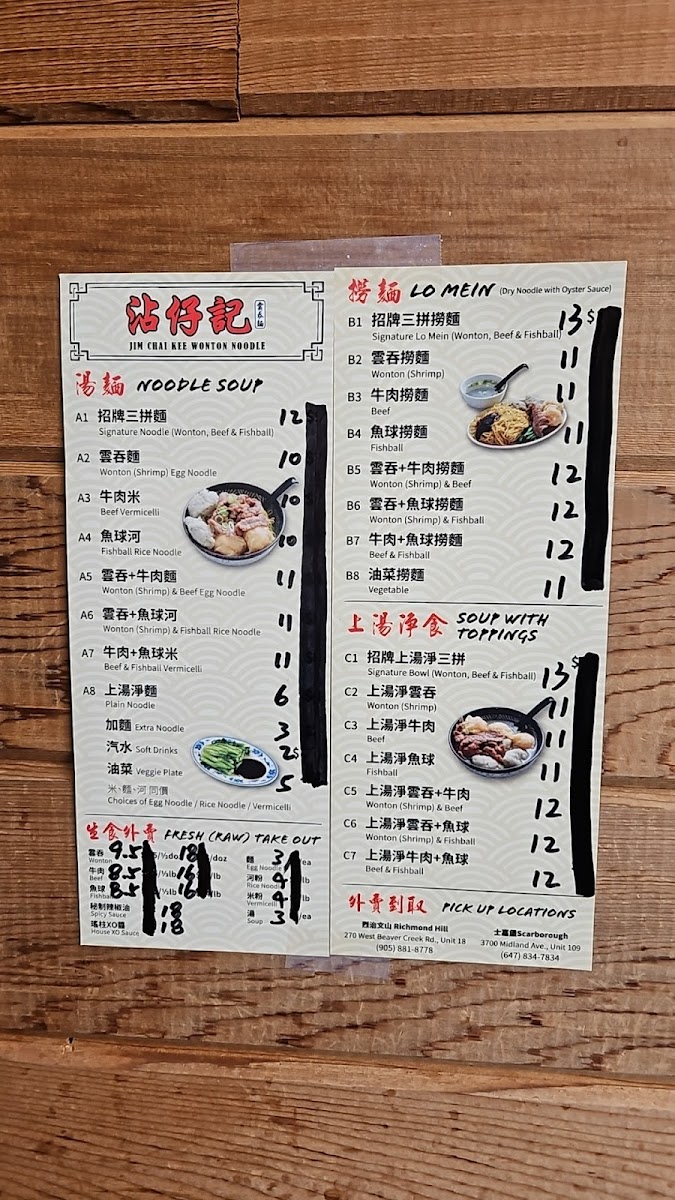 沾仔記 雲吞麵
JIM CHAI KEE WONTON NOODLE
湯麵 NOODLE SOUP
A1 招牌三拼麵 12
Signature Noodle (Wonton, Beef & Fishball)
A2 雲吞麵 10
Wonton (Shrimp) Egg Noodle
A3 牛肉米 10
Beef Vermicelli
A4 魚球河 10
Fishball Rice Noodle
A5 雲吞+牛肉麵 11
Wonton (Shrimp) & Beef Egg Noodle
A6 雲吞+魚球河 11
Wonton (Shrimp) & Fishball Rice Noodle
A7 牛肉+魚球米 11
Beef & Fishball Vermicelli
A8 上湯淨麵 6
Plain Noodle
加麵 Extra Noodle 3
汽水 Soft Drinks 2$
油菜 Veggie Plate 5
米、麵、河同價
Choices of Egg Noodle / Rice Noodle / Vermicelli
生食外賣 FRESH (RAW) TAKE OUT
雲吞 9.5 /½doz 18 /doz
Wonton
牛肉 8.5 /½lb 16 /lb
Beef
魚球 8.5 /½lb 16 /lb
Fishball
秘制辣椒油 18
Spicy Sauce
瑤柱XO醬 18
House XO Sauce
麵 3 /ea
Egg Noodle
河粉 4 /lb
Rice Noodle
米粉 4 /lb
Vermicelli
湯 3 /ea
Soup
撈麵 LO MEIN (Dry Noodle with Oyster Sauce)
B1 招牌三拼撈麵 13 $
Signature Lo Mein (Wonton, Beef & Fishball)
B2 雲吞撈麵 11
Wonton (Shrimp)
B3 牛肉撈麵 11
Beef
B4 魚球撈麵 11
Fishball
B5 雲吞+牛肉撈麵 12
Wonton (Shrimp) & Beef
B6 雲吞+魚球撈麵 12
Wonton (Shrimp) & Fishball
B7 牛肉+魚球撈麵 12
Beef & Fishball
B8 油菜撈麵 11
Vegetable
上湯淨食 SOUP WITH TOPPINGS
C1 招牌上湯淨三拼 13 $
Signature Bowl (Wonton, Beef & Fishball)
C2 上湯淨雲吞 11
Wonton (Shrimp)
C3 上湯淨牛肉 11
Beef
C4 上湯淨魚球 11
Fishball
C5 上湯淨雲吞+牛肉 12
Wonton (Shrimp) & Beef
C6 上湯淨雲吞+魚球 12
Wonton (Shrimp) & Fishball
C7 上湯淨牛肉+魚球 12
Beef & Fishball
外賣到取 PICK UP LOCATIONS
烈治文山 Richmond Hill
270 West Beaver Creek Rd., Unit 18
(905) 881-8778
士嘉堡Scarborough
3700 Midland Ave., Unit 109
(647) 834-7834